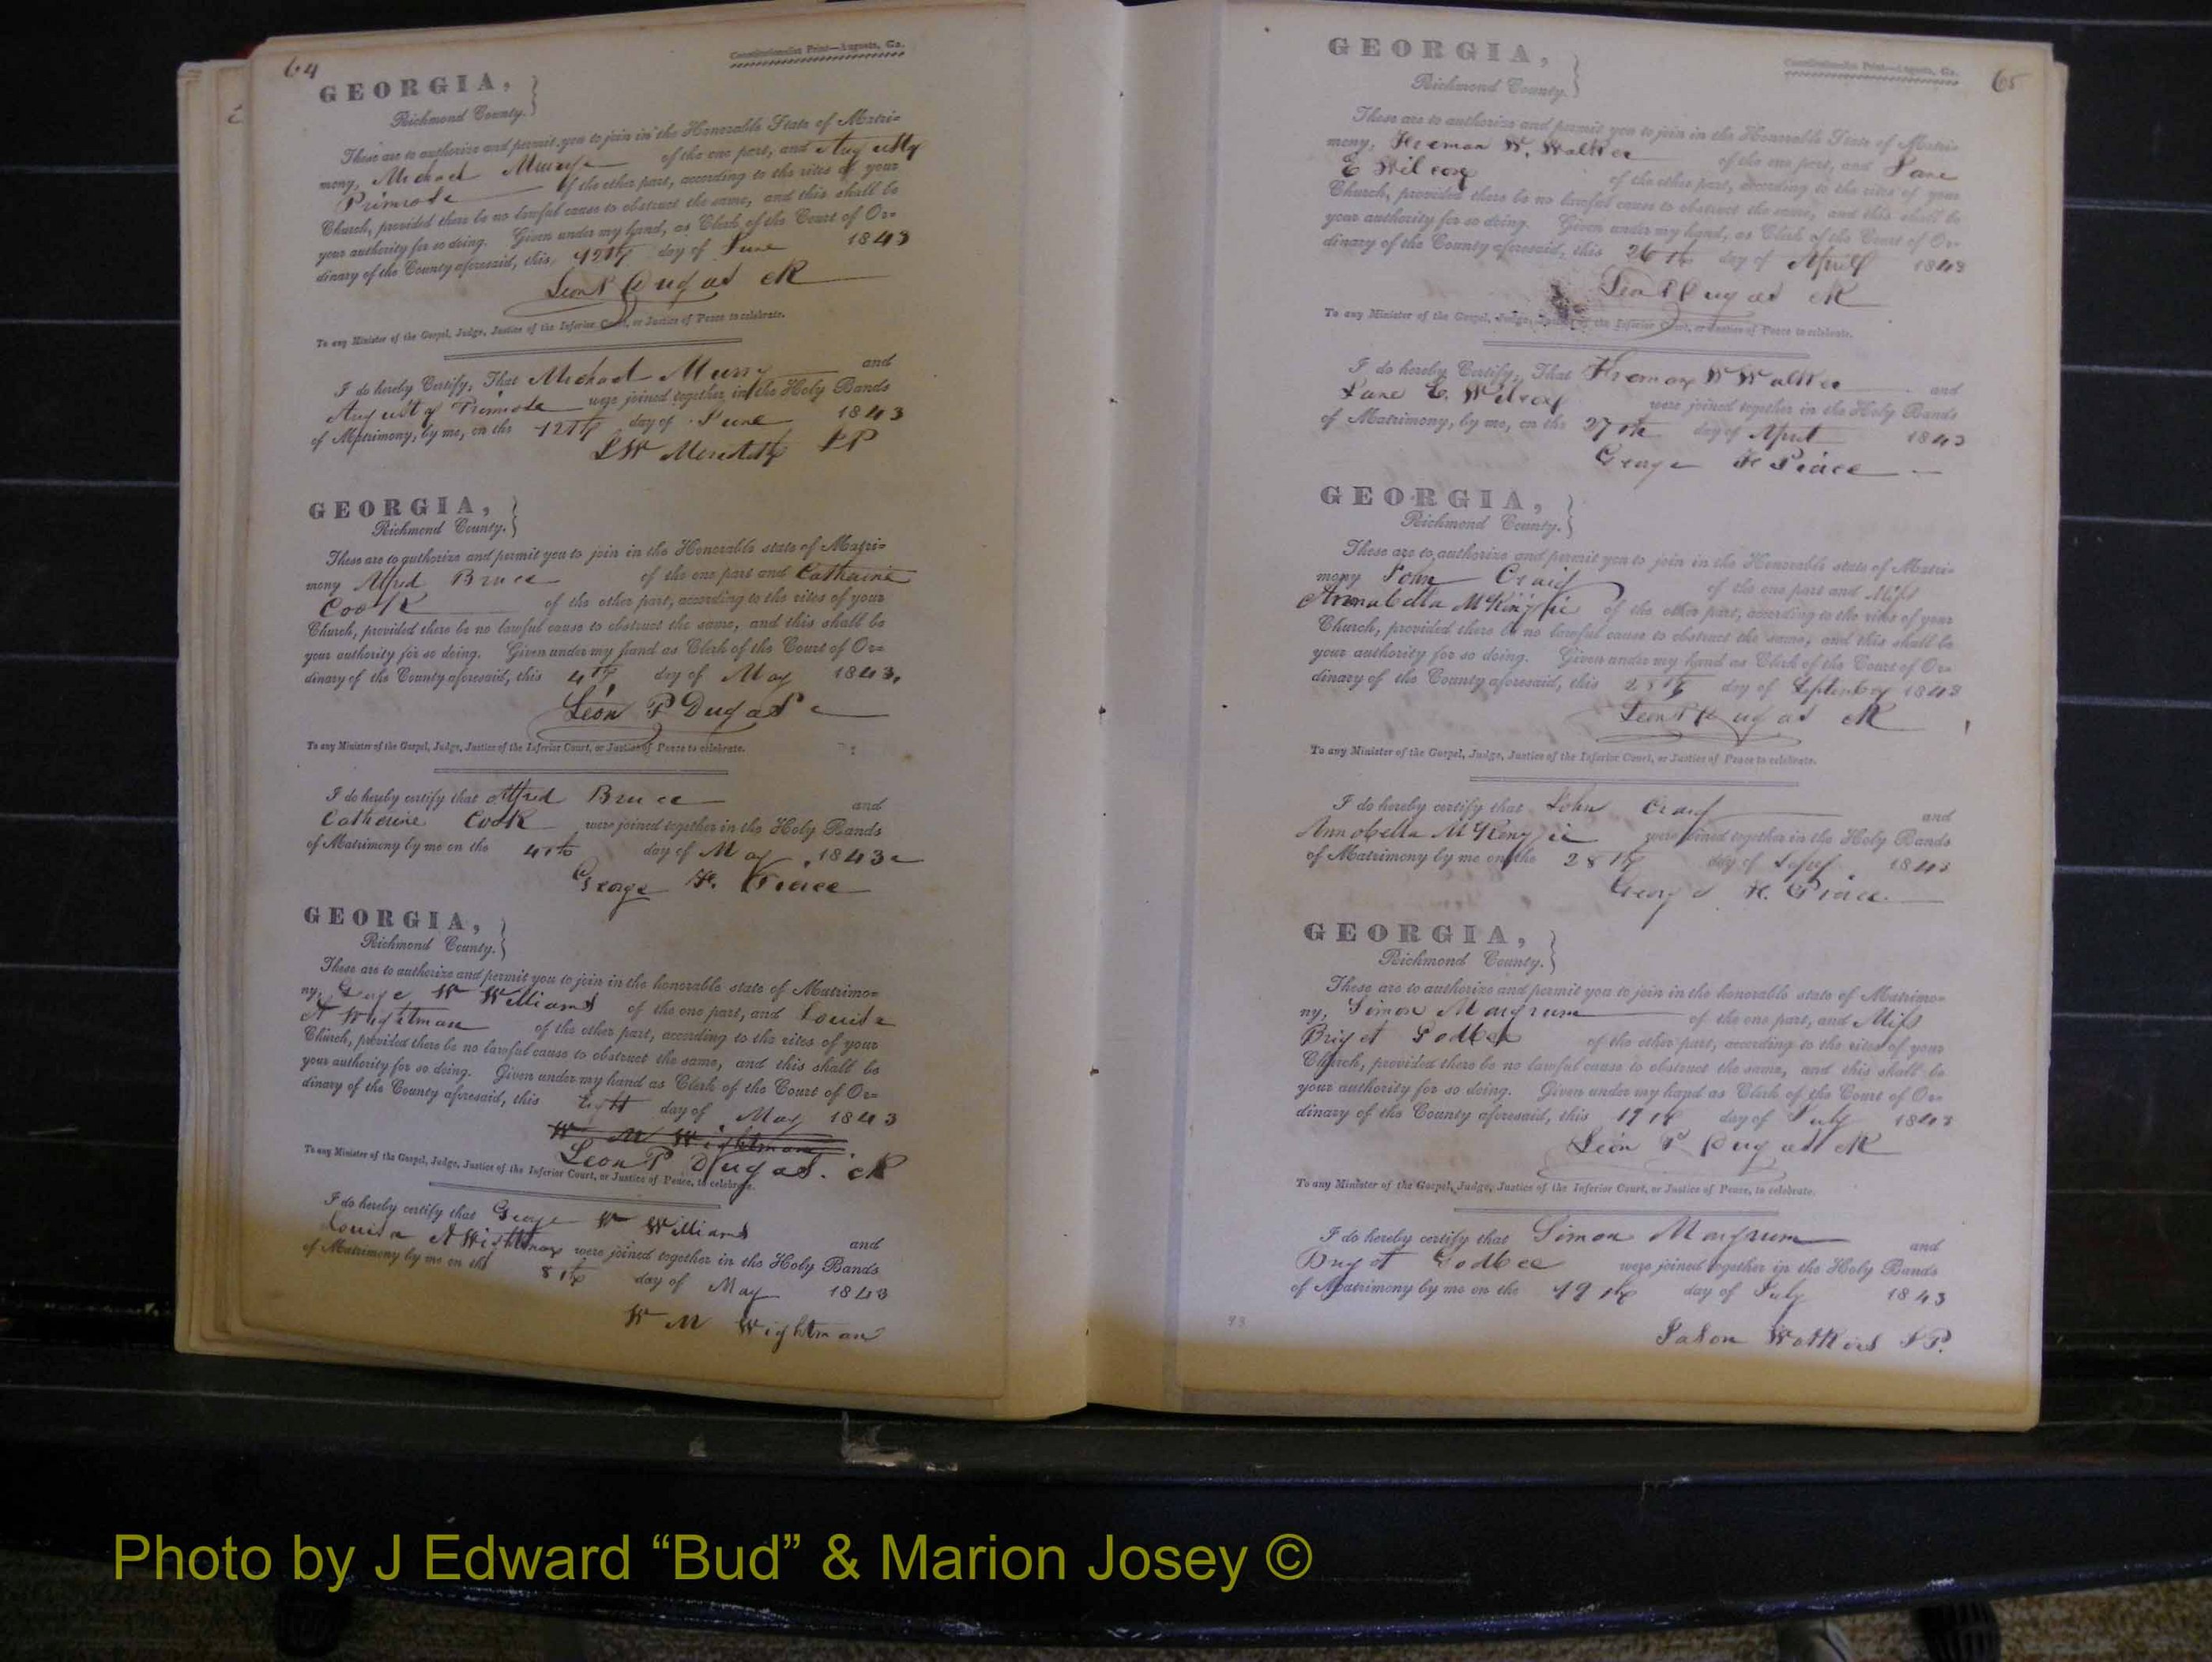 64
Constitutionalist Print—Augusta, Ga.
GEORGIA,
Richmond County.
These are to authorize and permit you to join in the Honorable State of Matri-
mony, Michael of the one part, and
Primrose of the other part, according to the rites of your
Church, provided there be no lawful cause to obstruct the same, and this shall be
your authority for so doing. Given under my hand, as Clerk of the Court of Or-
dinary of the County aforesaid, this, 12th day of June 1843
Leon P Dugas clk
To any Minister of the Gospel, Judge, Justice of the Inferior Court, or Justice of Peace to celebrate.
I do hereby Certify, That Michael Murry and
Primrose were joined together in the Holy Bands
of Matrimony, by me, on the 12th day of June 1843
Meredith JP
GEORGIA,
Richmond County.
These are to authorize and permit you to join in the Honorable state of Matri-
mony Alfred Bruce of the one part and Catherine
Cook of the other part, according to the rites of your
Church, provided there be no lawful cause to obstruct the same, and this shall be
your authority for so doing. Given under my hand as Clerk of the Court of Or-
dinary of the County aforesaid, this 4th day of May 1843.
Leon P Dugas c
To any Minister of the Gospel, Judge, Justice of the Inferior Court, or Justice of Peace to celebrate.
I do hereby certify that Alfred Bruce and
Catherine Cook were joined together in the Holy Bands
of Matrimony by me on the 4th day of May 1843
George F. Pierce
GEORGIA,
Richmond County.
These are to authorize and permit you to join in the honorable state of Matrimo-
ny, George W Williams of the one part, and Louisa
A Wightman of the other part, according to the rites of your
Church, provided there be no lawful cause to obstruct the same, and this shall be
your authority for so doing. Given under my hand as Clerk of the Court of Or-
dinary of the County aforesaid, this Eight day of May 1843
W M Wightman
Leon P Dugas. clk
To any Minister of the Gospel, Judge, Justice of the Inferior Court, or Justice of Peace, to celebrate.
I do hereby certify that George W Williams and
Louisa A Wightman were joined together in the Holy Bands
of Matrimony by me on the 8th day of May 1843
W M Wightman
65
Constitutionalist Print—Augusta, Ga.
GEORGIA,
Richmond County.
These are to authorize and permit you to join in the Honorable State of Matri-
mony, Freeman W. Walker of the one part, and Jane
E Wilcox of the other part, according to the rites of your
Church, provided there be no lawful cause to obstruct the same, and this shall be
your authority for so doing. Given under my hand, as Clerk of the Court of Or-
dinary of the County aforesaid, this 26th day of April 1843
Leon P Dugas clk
To any Minister of the Gospel, Judge, Justice of the Inferior Court, or Justice of Peace to celebrate.
I do hereby Certify, That W Walker and
Jane E. Wilcox were joined together in the Holy Bands
of Matrimony, by me, on the 27th day of April 1843
George F Pierce
GEORGIA,
Richmond County.
These are to authorize and permit you to join in the Honorable state of Matri-
mony John Craig of the one part and Miss
Annabella McKinzie of the other part, according to the rites of your
Church, provided there be no lawful cause to obstruct the same, and this shall be
your authority for so doing. Given under my hand as Clerk of the Court of Or-
dinary of the County aforesaid, this 28th day of September 1843
Leon P Dugas clk
To any Minister of the Gospel, Judge, Justice of the Inferior Court, or Justice of Peace to celebrate.
I do hereby certify that John Craig and
Annabella McKenzie were joined together in the Holy Bands
of Matrimony by me on the 28th day of Sept 1843
George F. Pierce.
GEORGIA,
Richmond County.
These are to authorize and permit you to join in the honorable state of Matrimo-
ny, Simon Mangrum of the one part, and Miss
Godbee of the other part, according to the rites of your
Church, provided there be no lawful cause to obstruct the same, and this shall be
your authority for so doing. Given under my hand as Clerk of the Court of Or-
dinary of the County aforesaid, this 19th day of July 1843
Leon P Dugas clk
To any Minister of the Gospel, Judge, Justice of the Inferior Court, or Justice of Peace, to celebrate.
I do hereby certify that Simon Mangrum and
Godbee were joined together in the Holy Bands
of Matrimony by me on the 19th day of July 1843
Jason Watkins JP.
Photo by J Edward “Bud” & Marion Josey ©